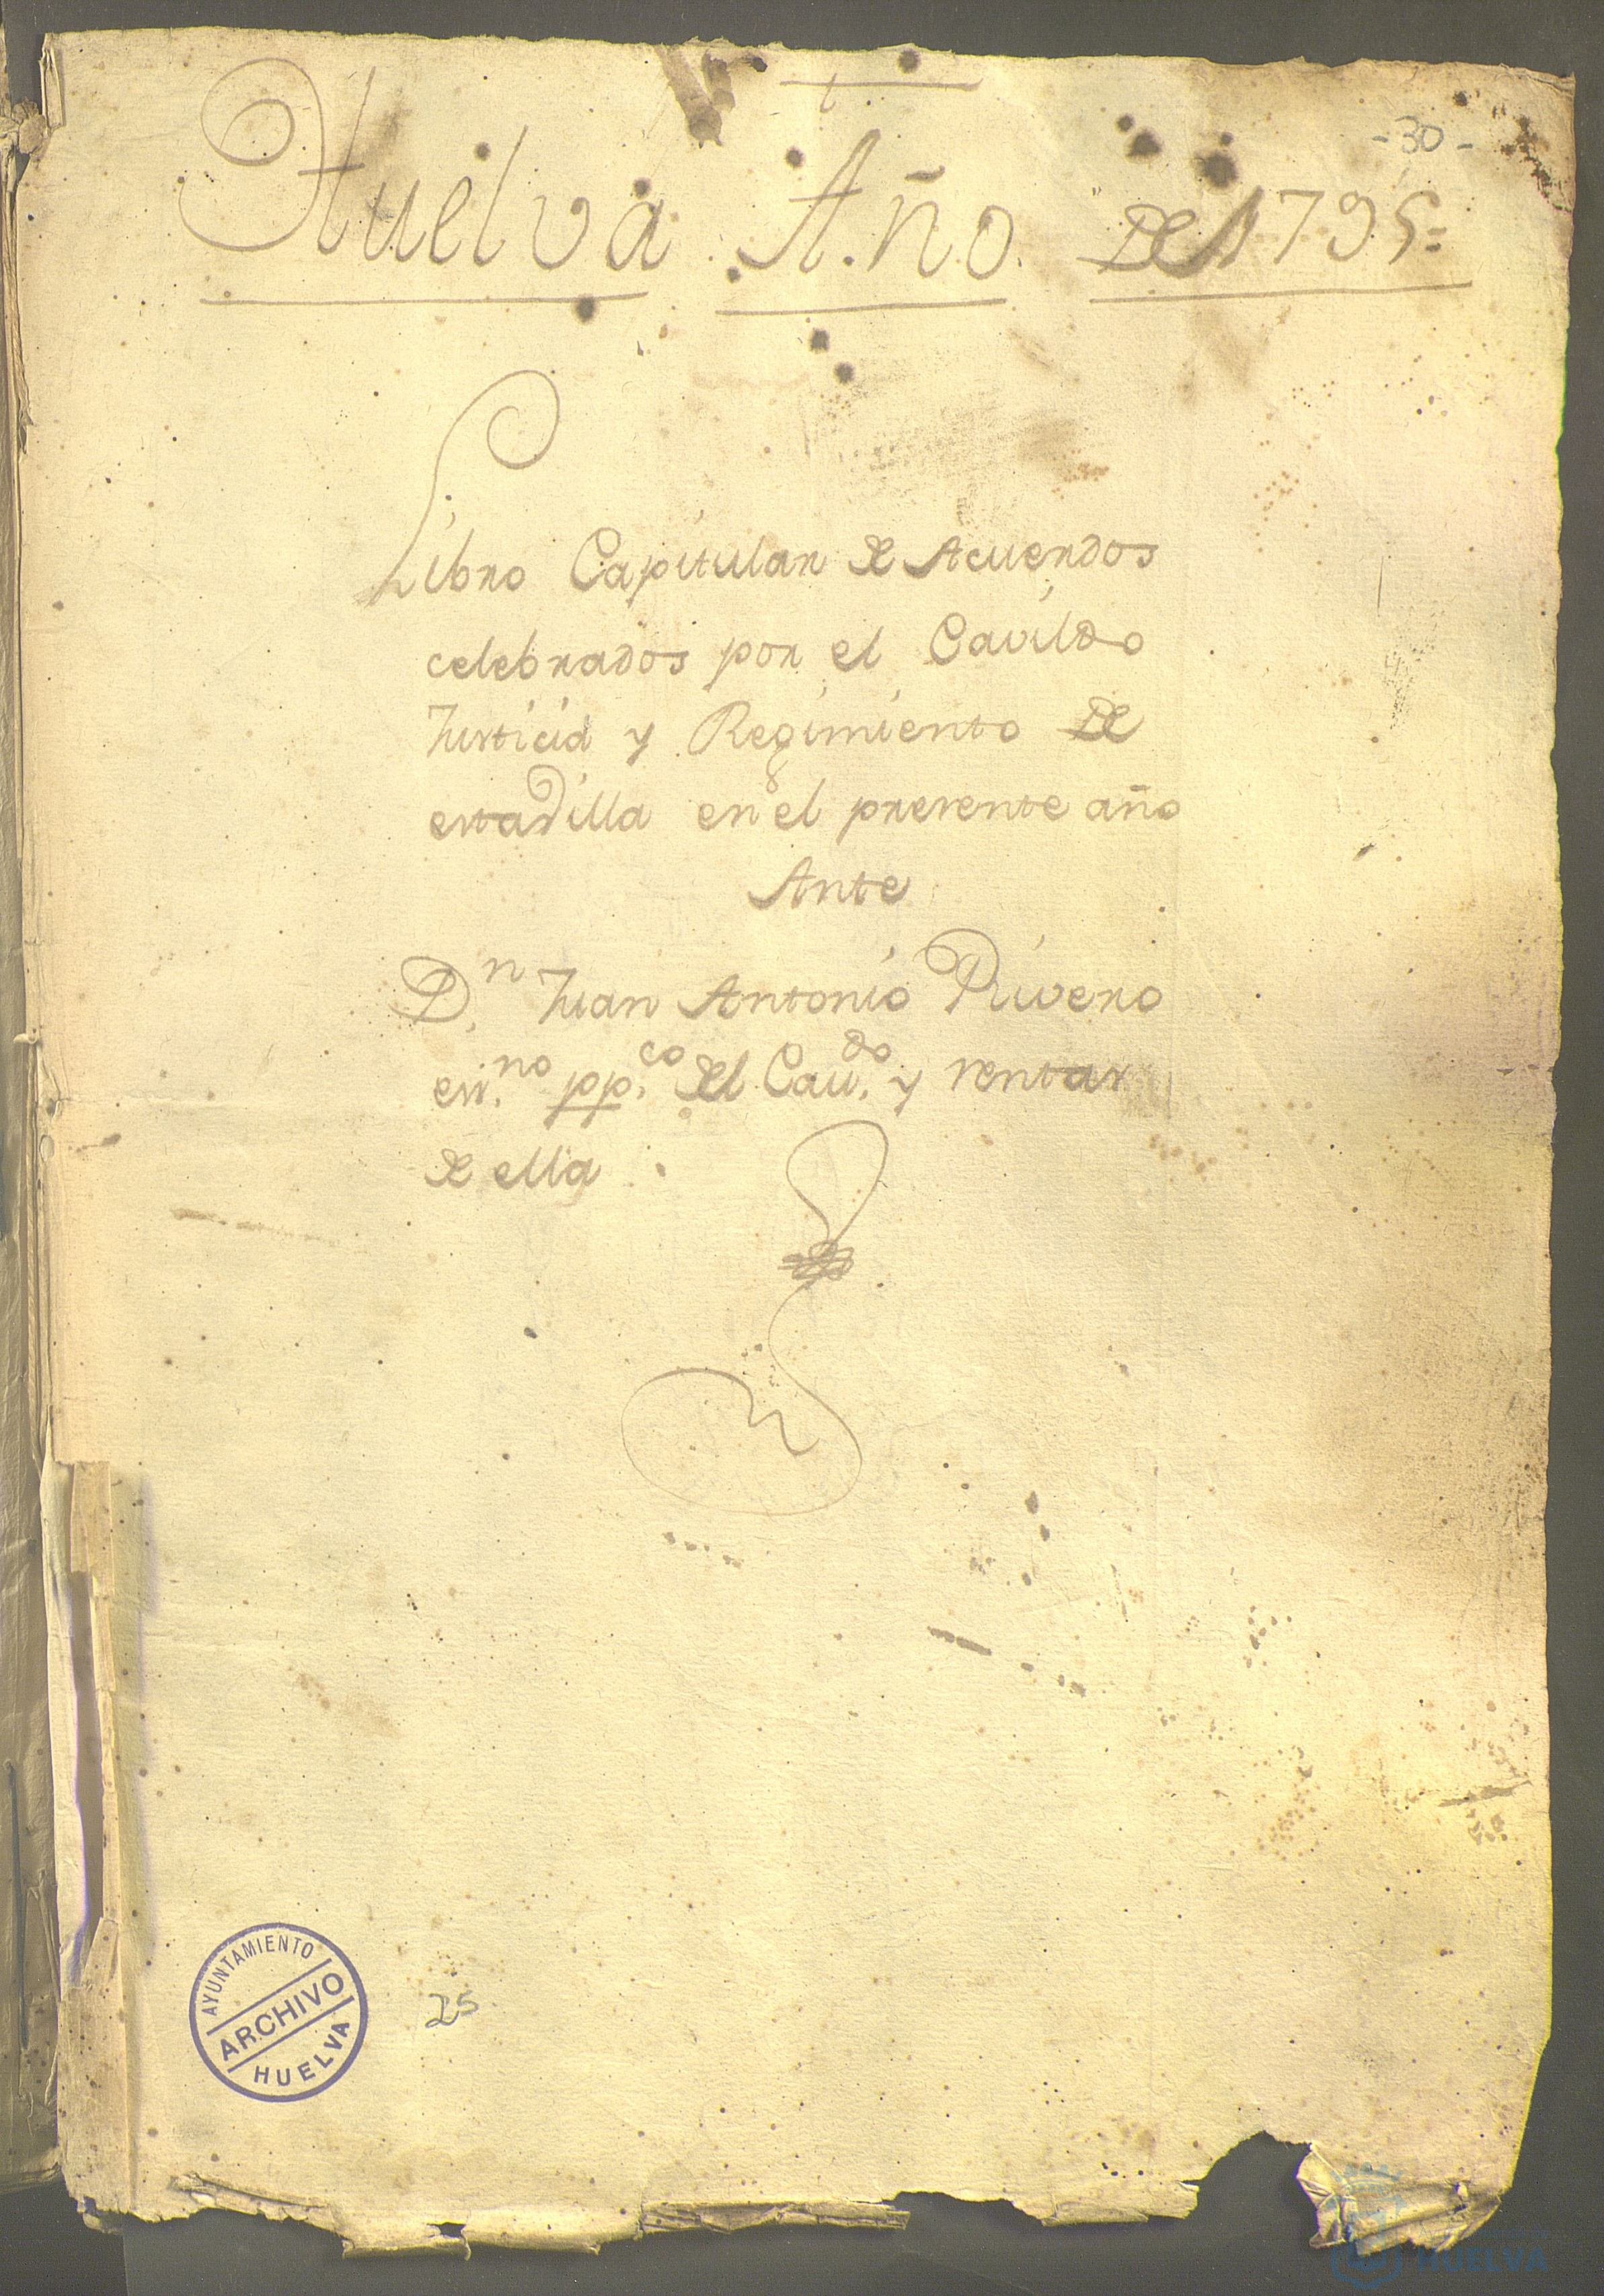 -30-
Huelva Año de 1795=
Libro Capitular de Acuerdos
celebrados por el Cavildo
Justicia y Regimiento de
esta Villa en el presente año
Ante
D.n Juan Antonio Rivero
ess.no pp.co del Cau.do y rentas
de ella
AYUNTAMIENTO
ARCHIVO
HUELVA
25
HUELVA